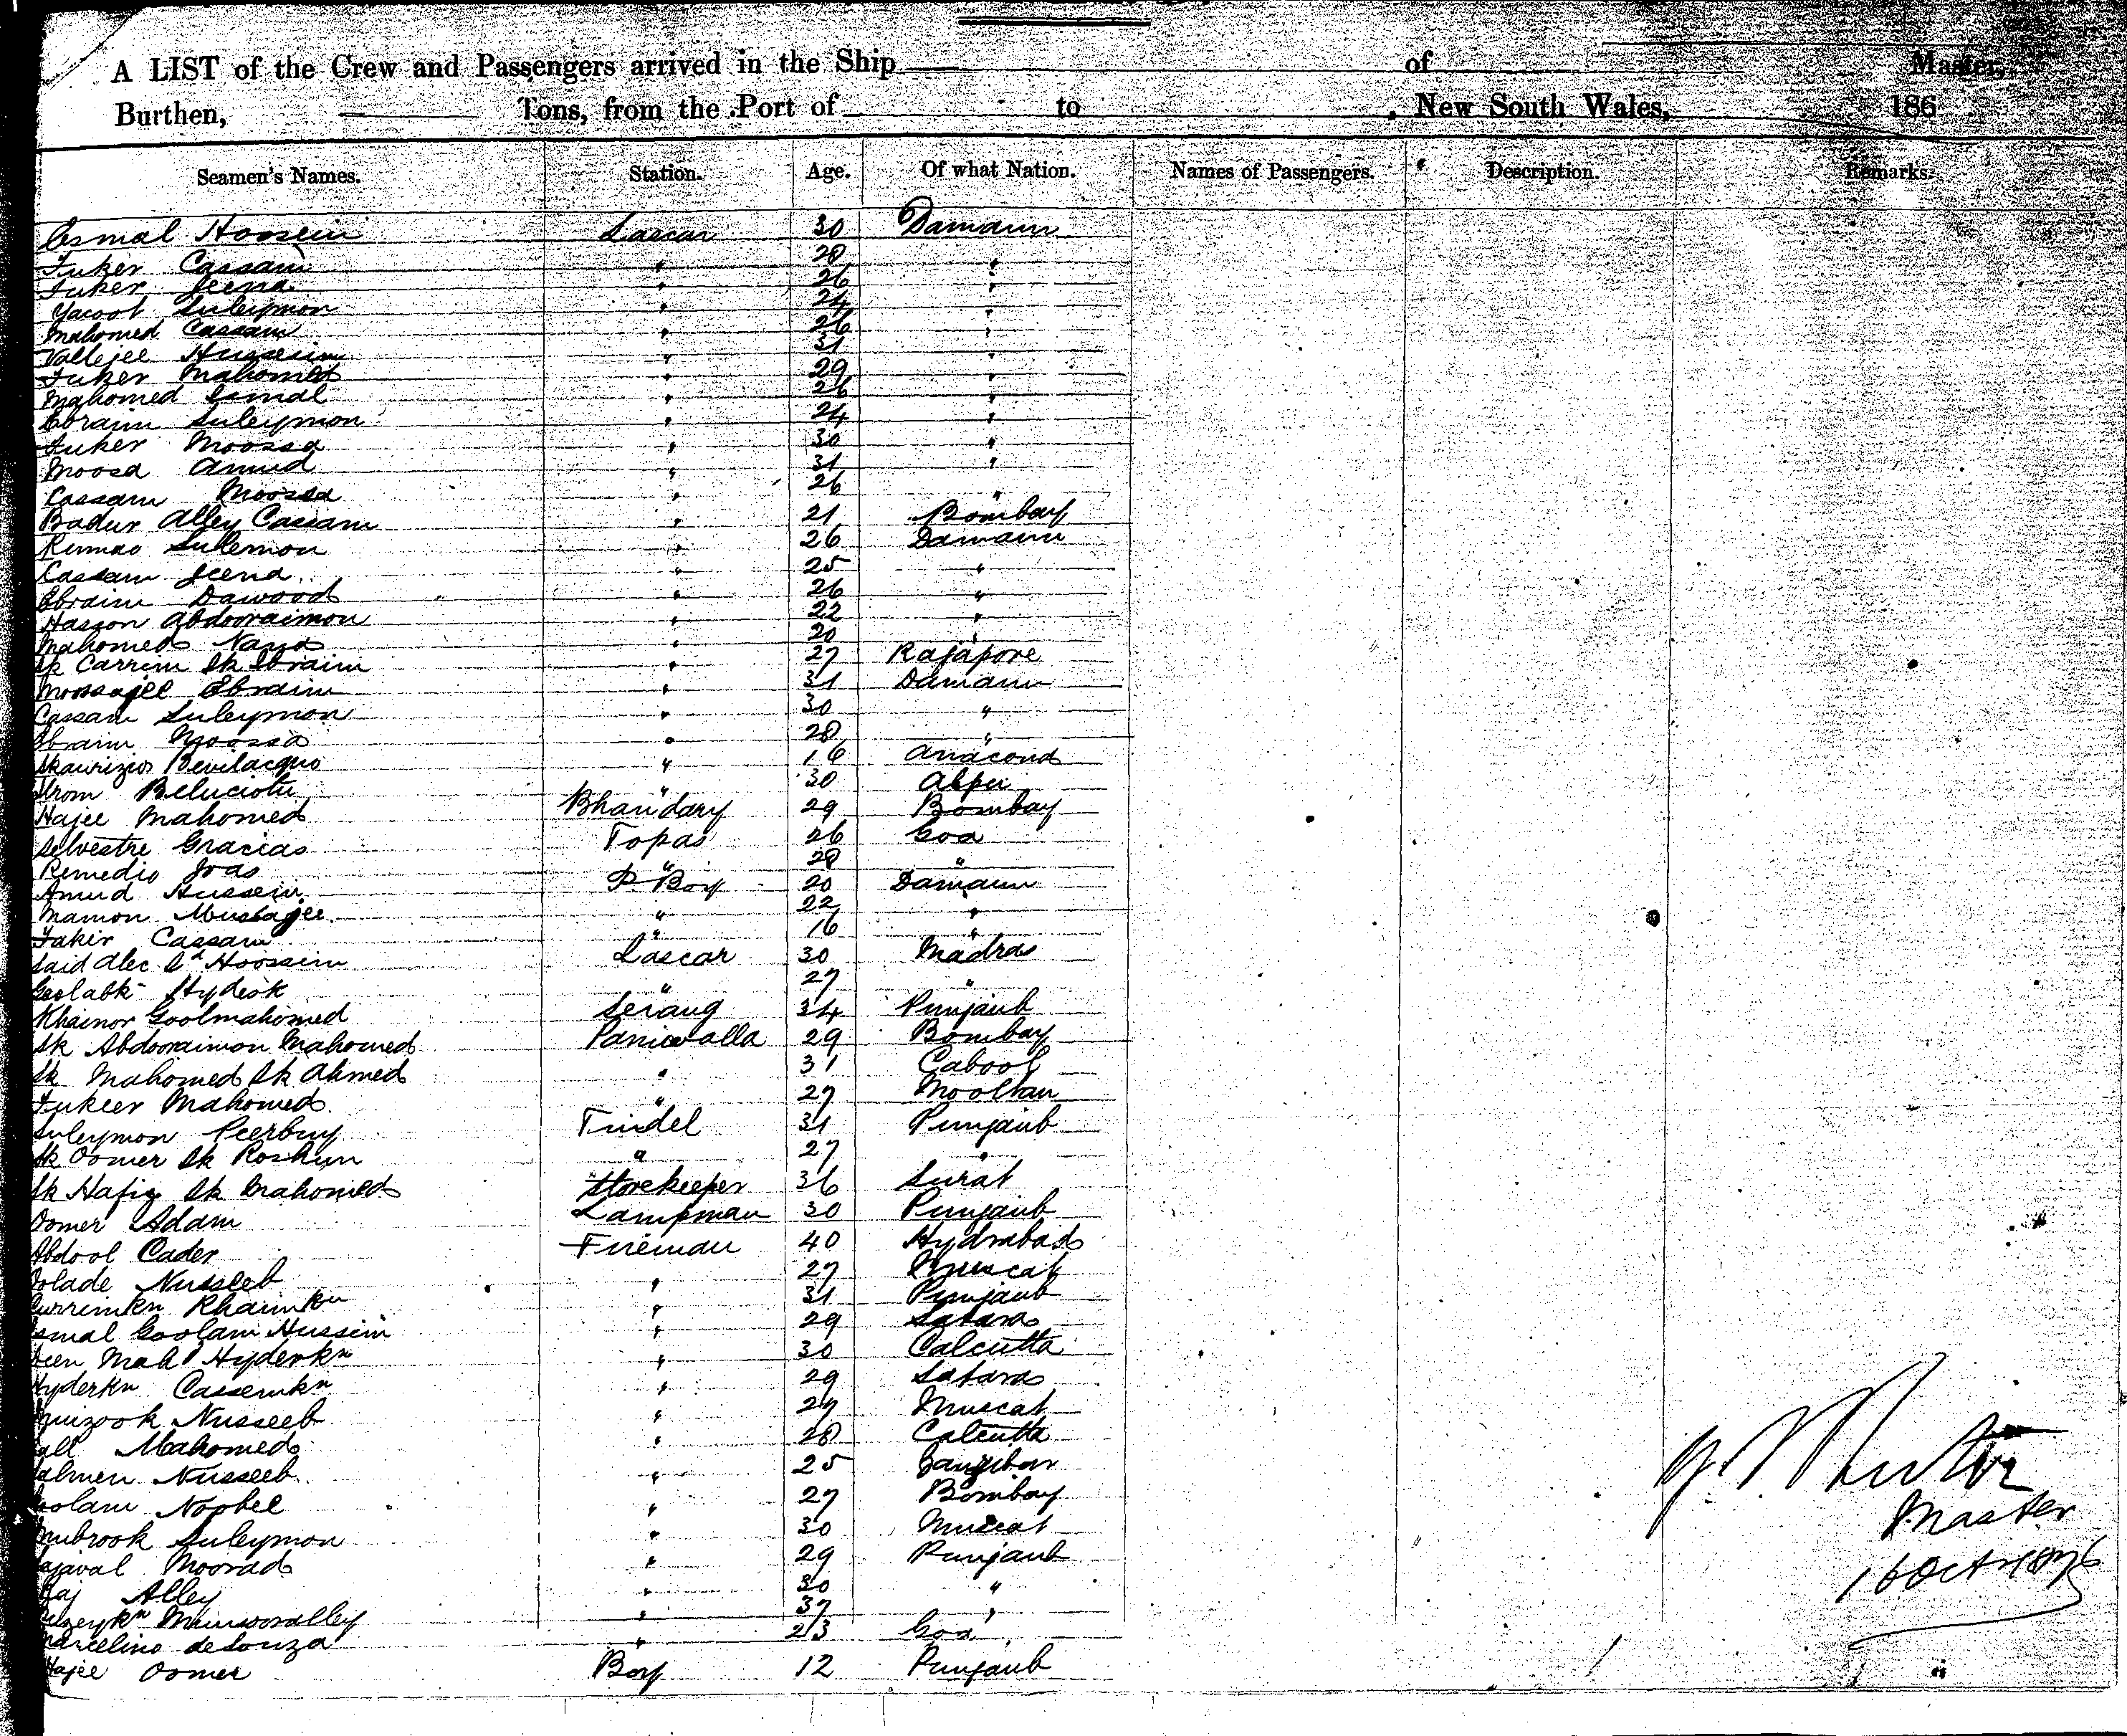 A LIST of the Crew and Passengers arrived in the Ship of Master,
Burthen, Tons, from the Port of to , New South Wales, 186
Seamen's Names. Station. Age. Of what Nation. Names of Passengers. Description. Remarks.
Esmal Hoosein Lascar 30 Damaun
Fuker Cassam " 28 "
Fuker Jeena " 26 "
Yacoob Suleymon " 24 "
Mahomed Cassam " 26 "
Vallejee Hussein " 31 "
Fuker Mahomed " 29 "
Mahomed Esmal " 26 "
Ebraim Suleymon " 24 "
Fuker Moossa " 30 "
Moosa Amud " 31 "
Cassam Moossa " 26 "
Badur Alley Cassam " 21 Bombay
Sulemon " 26 Damaun
Cassam Jeena " 25 "
Ebraim Dawood " 26 "
Hasson Abdooraimon " 22 "
Mahomed " 20 "
Sk Carrim Sk Ebraim " 27 Rajapore
Moosajee Ebraim " 31 Damaun
Cassam Suleymon " 30 "
Ebraim Moossa " 28 "
Maurizio Bevilacquo " 16 Anacond
Beluciotu " 30
Hajee Mahomed Bhandary 29 Bombay
Selvestre Gracias Topas 26 Goa
Remedio Joao " 28 "
Amud Hussein P. Boy 20 Damaun
Mamon Musajee " 22 "
Fakir Cassam " 16 "
Said Alee Sd Hoossein Lascar 30 Madras
Hydesk " 27 "
Khainor Goolmahomed Serang 34 Punjaub
Sk Abdooraimon Mahomed Paniwalla 29 Bombay
Sk Mahomed Sk Ahmed " 31 Cabool
Fukeer Mahomed " 27 Mooltan
Suleymon Peerbuy Tindel 31 Punjaub
Sk Oomer Sk Roshun " 27 "
Sk Hafiz Sk Mahomed Storekeeper 36 Surat
Oomer Adam Lampman 30 Punjaub
Abdool Cader Fireman 40 Hydrabad
olade Nusseeb " 27 Muscat
urremkn Khaimkn " 31 Punjaub
smal Goolam Hussein " 29 Satara
een Mahd Hyderkn " 30 Calcutta
Hyderkn Cassemkn " 29 Satara
uizook Nusseeb " 27 Muscat
all Mahomed " 28 Calcutta
almen Nusseeb " 25 Zanzibar
oolam Noobee " 27 Bombay
mubrook Suleymon " 30 Muscat
ajaval Moorad " 29 Punjaub
Haj Alley " 30 "
Munsooralley " 37 "
Marcelino deSouza " 23 Goa
Hajee Oomer Boy 12 Punjaub
Master
16 Oct 1876